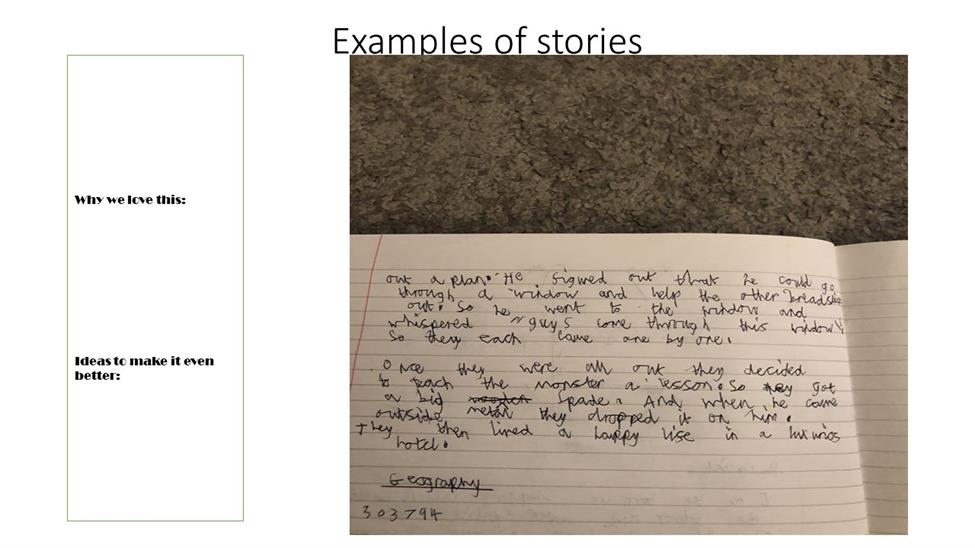 Examples of stories
Why we love this:
Ideas to make it even
better:
out a plan. He figured out that he could go
through a window and help the other
out. So he went to the window and
whispered "guys come through this window"
So they each came one by one.
Once they were all out they decided
to teach the monster a lesson. So they got
a big wooden spade. And when he came
outside metal they dropped it on him.
They then lived a happy lise in a luxurios
hotel.
Geography
303794